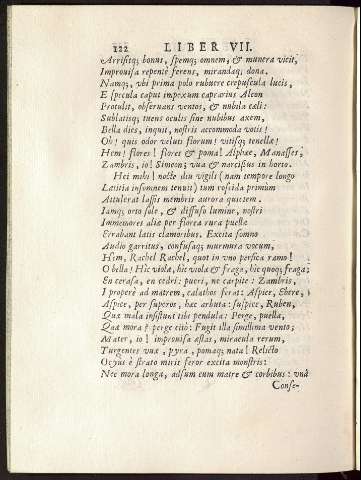 122 LIBER VII.
Arrisitq; bonus, spemq; omnem, & munera vicit,
Improvisa repentè ferens, mirandaq; dona.
Namq; vbi prima polo rubuere crepuscula lucis,
E specula caput impexum caprarius Alcon
Protulit, observans ventos, & nubila cœli:
Sublatisq; tuens oculis sine nubibus axem,
Bella dies, inquit, nostris accommoda votis!
Oh! quis odor veluti florum! vitisq; tenellæ!
Hem! flores! flores & poma! Alphæe, Manasses,
Zambris, io! Simeon; vua & narcissus in horto.
Hei mihi! nocte diu vigili (nam tempore longo
Lætitia insomnem tenuit) tum roscida primùm
Attulerat lassis membris aurora quietem.
Iamq; orto sole, & diffuso lumine, nostri
Immemores aliæ per florea rura puellæ
Errabant lætis clamoribus. Excita somno
Audio garritus, confusaq; murmura vocum,
Hem, Rachel Rachel, quot in vno persica ramo!
O bella! Hic viola, hic viola & fraga, hic quoq; fraga;
En cerasa, en cedri: pueri, ne carpite: Zambris,
I properè ad matrem, calathos ferat: Aspice, Ebere,
Aspice, per superos, hæc arbuta: suspice, Ruben,
Quæ mala insistunt tibi pendula: Perge, puella,
Quæ mora? perge citò: Fugit illa simillima vento;
Mater, io! improvisa æstas, miracula rerum,
Turgentes vuæ, pyra, pomaq; nata! Relicto
Ocyus è strato miris feror excita monstris:
Nec mora longa, adsum cum matre & corbibus: vnà
Conse-